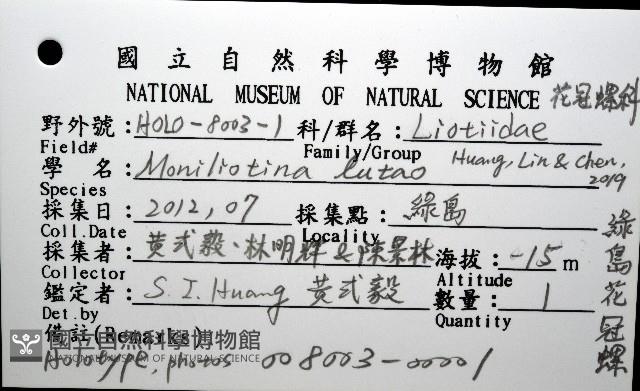 國立自然科學博物館
NATIONAL MUSEUM OF NATURAL SCIENCE 花冠螺科
野外號: HOLO-8003-1 科/群名: Liotiidae
Field# Family/Group
學 名: Moniliotina lutao Huang, Lin & Chen, 2019
Species
採集日: 2012,07 採集點: 綠島
Coll.Date Locality
採集者: 黄式毅、林明輝 & 陳景林 海拔: -15 m
Collector Altitude
鑑定者: S. I. Huang 黄式毅 數量: 1
Det.by Quantity
綠島花冠螺
備註(Remarks)
Holotype, photos 008003-00001
國立自然科學博物館
NATIONAL MUSEUM OF NATURAL SCIENCE